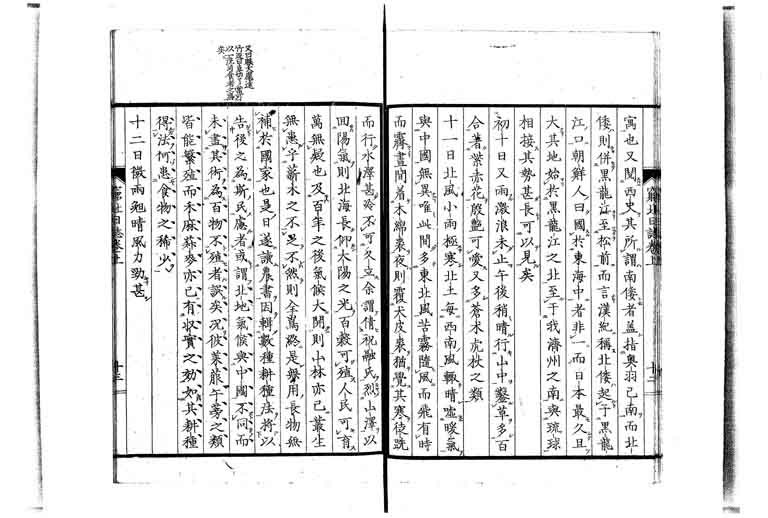 寓也又閱西史其所謂南倭者蓋指奧羽已南而北
倭則併黑龍江至松前而言漢紀稱北倭起于黑龍
江口朝鮮人曰國於東海中者非一而日本最久且
大其地始於黑龍江之北至于我濟州之南與琉球
相接其勢甚長可以見矣
初十日又雨激浪未止午後稍晴行山中鑿草多百
合著紫赤花殷艷可愛又多蒼朮虎杖之類
十一日北風小雨極寒北土每西南風輙晴噓暖氣
與中國無異唯此間多東北風苦霧隨風而飛有時
而霽晝間着木綿裘夜則覆犬皮裘猶覺其寒徒跣
而行水澤甚冷不可久立余謂倩祝融氏烈山澤以
回陽氣則北海長仰太陽之光百穀可殖人民可育
萬無疑也及百年之後氣候大開則山林亦已叢生
無患乎薪木之不足不然則全爲終是擧用長物無
補於國家也是日遂讀農書因輯數種耕種法將以
告後之為斯民慮者或謂北地氣候與中國不同而
未盡其術為百物不殖者誤矣况彼萊菔午蒡之類
皆能繁殖而禾麻蕎麥亦已有收實之効如其耕種
得法何患食物之稀少
十二日微雨勉晴風力勁甚